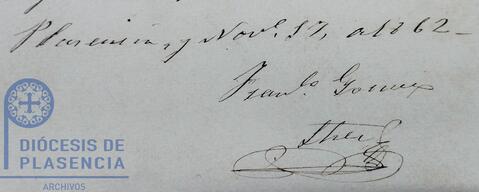 Plasencia y Nov.e 17, a 1862-
Fran.co Gomez
DIÓCESIS DE
PLASENCIA
ARCHIVOS